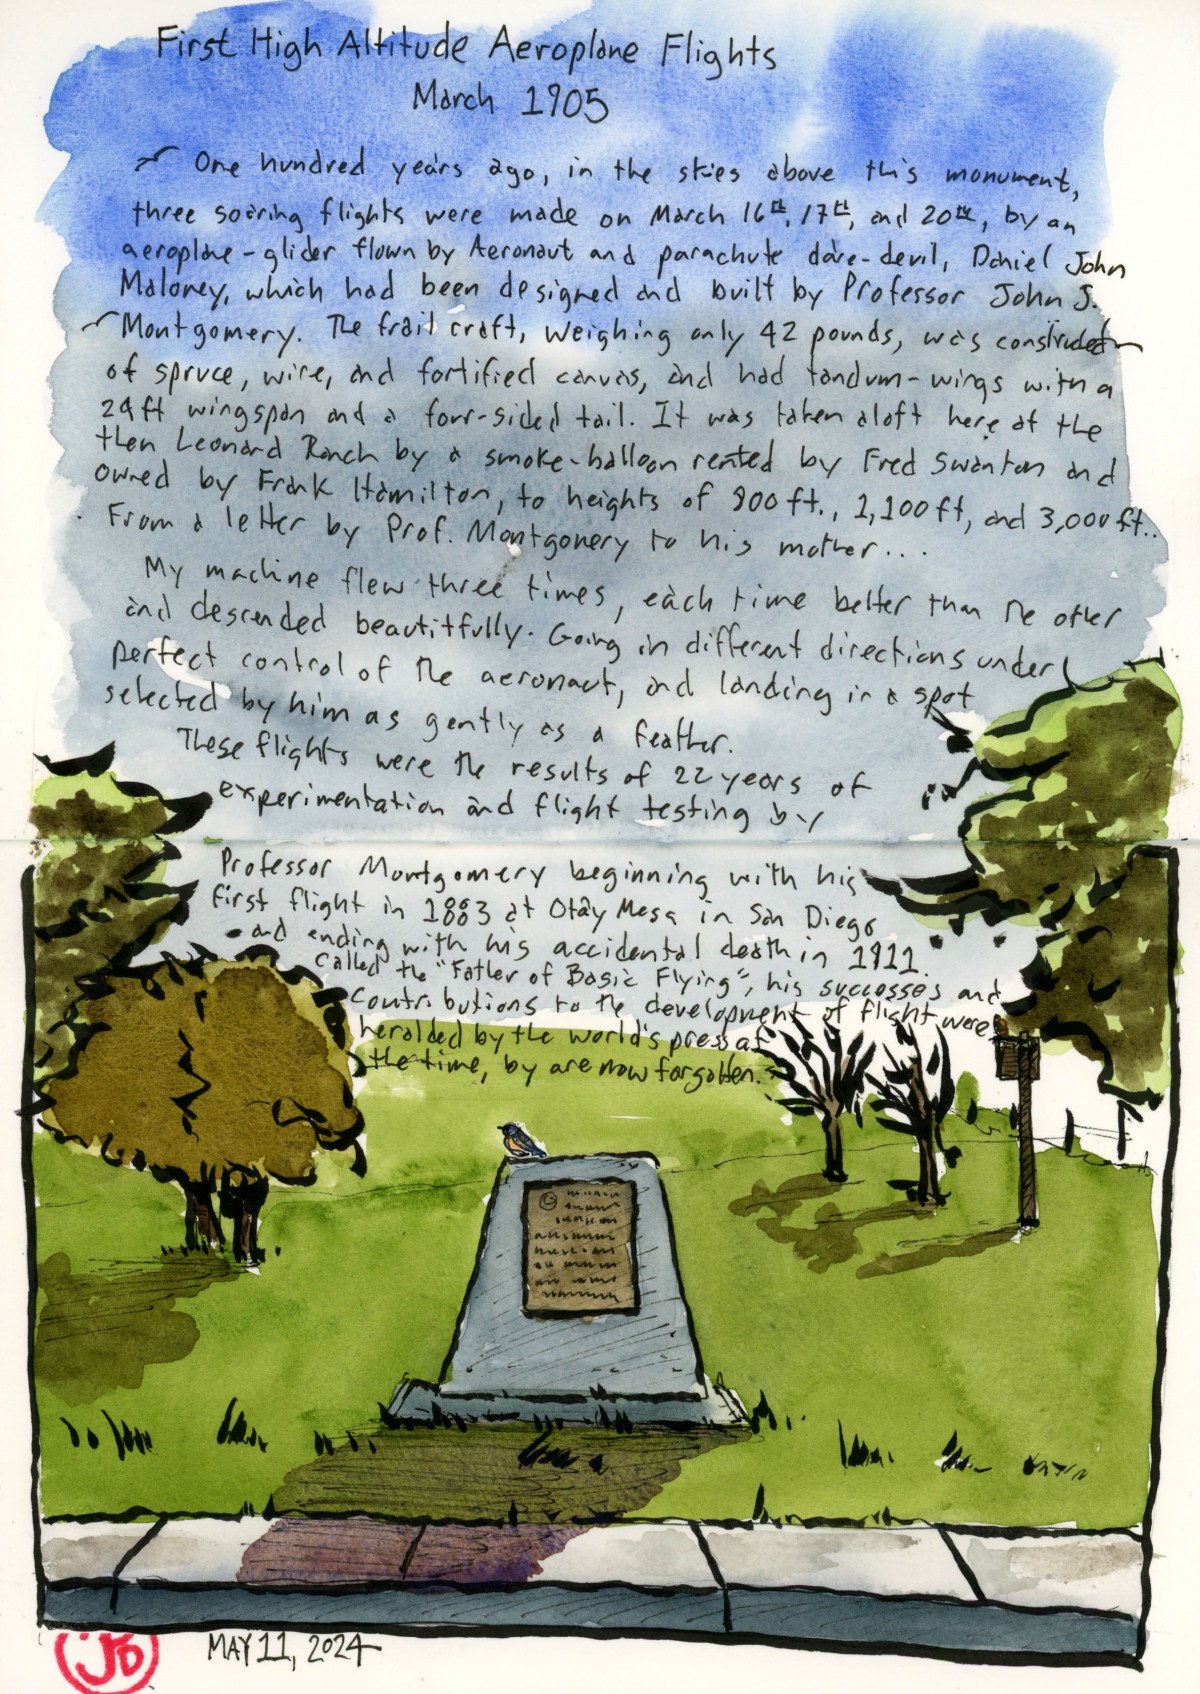 First High Altitude Aeroplane Flights
March 1905
One hundred years ago, in the skies above this monument,
three soaring flights were made on March 16th, 17th, and 20th, by an
aeroplane-glider flown by Aeronaut and parachute dare-devil, Daniel John
Maloney, which had been designed and built by Professor John J.
Montgomery. The frail craft, weighing only 42 pounds, was constructed
of spruce, wire, and fortified canvas, and had tandum-wings with a
24ft wingspan and a four-sided tail. It was taken aloft here at the
then Leonard Ranch by a smoke-balloon rented by Fred Swanton and
owned by Frank Hamilton, to heights of 800 ft., 1,100 ft, and 3,000 ft..
From a letter by Prof. Montgomery to his mother...
My machine flew three times, each time better than the other
and descended beautitfully. Going in different directions under
perfect control of the aeronaut, and landing in a spot
selected by him as gently as a feather.
These flights were the results of 22 years of
experimentation and flight testing by
Professor Montgomery beginning with his
first flight in 1883 at Otay Mesa in San Diego
and ending with his accidental death in 1911.
Called the "Father of Basic Flying", his successes and
contributions to the development of flight were
heralded by the world's press at
the time, by are now forgotten.
JD
MAY 11, 2024